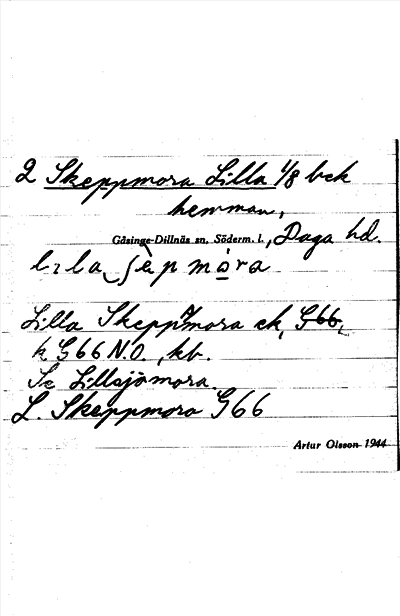 2 Skeppmora Lilla 1/8 bek
hemman,
Gåsinge-Dillnäs sn, Söderm. l., Daga hd.
Lilla Skeppmora ek, G66,
k G66 N.O., kb.
Se Lillsjömora.
L. Skeppmora G66
Artur Olsson 1944